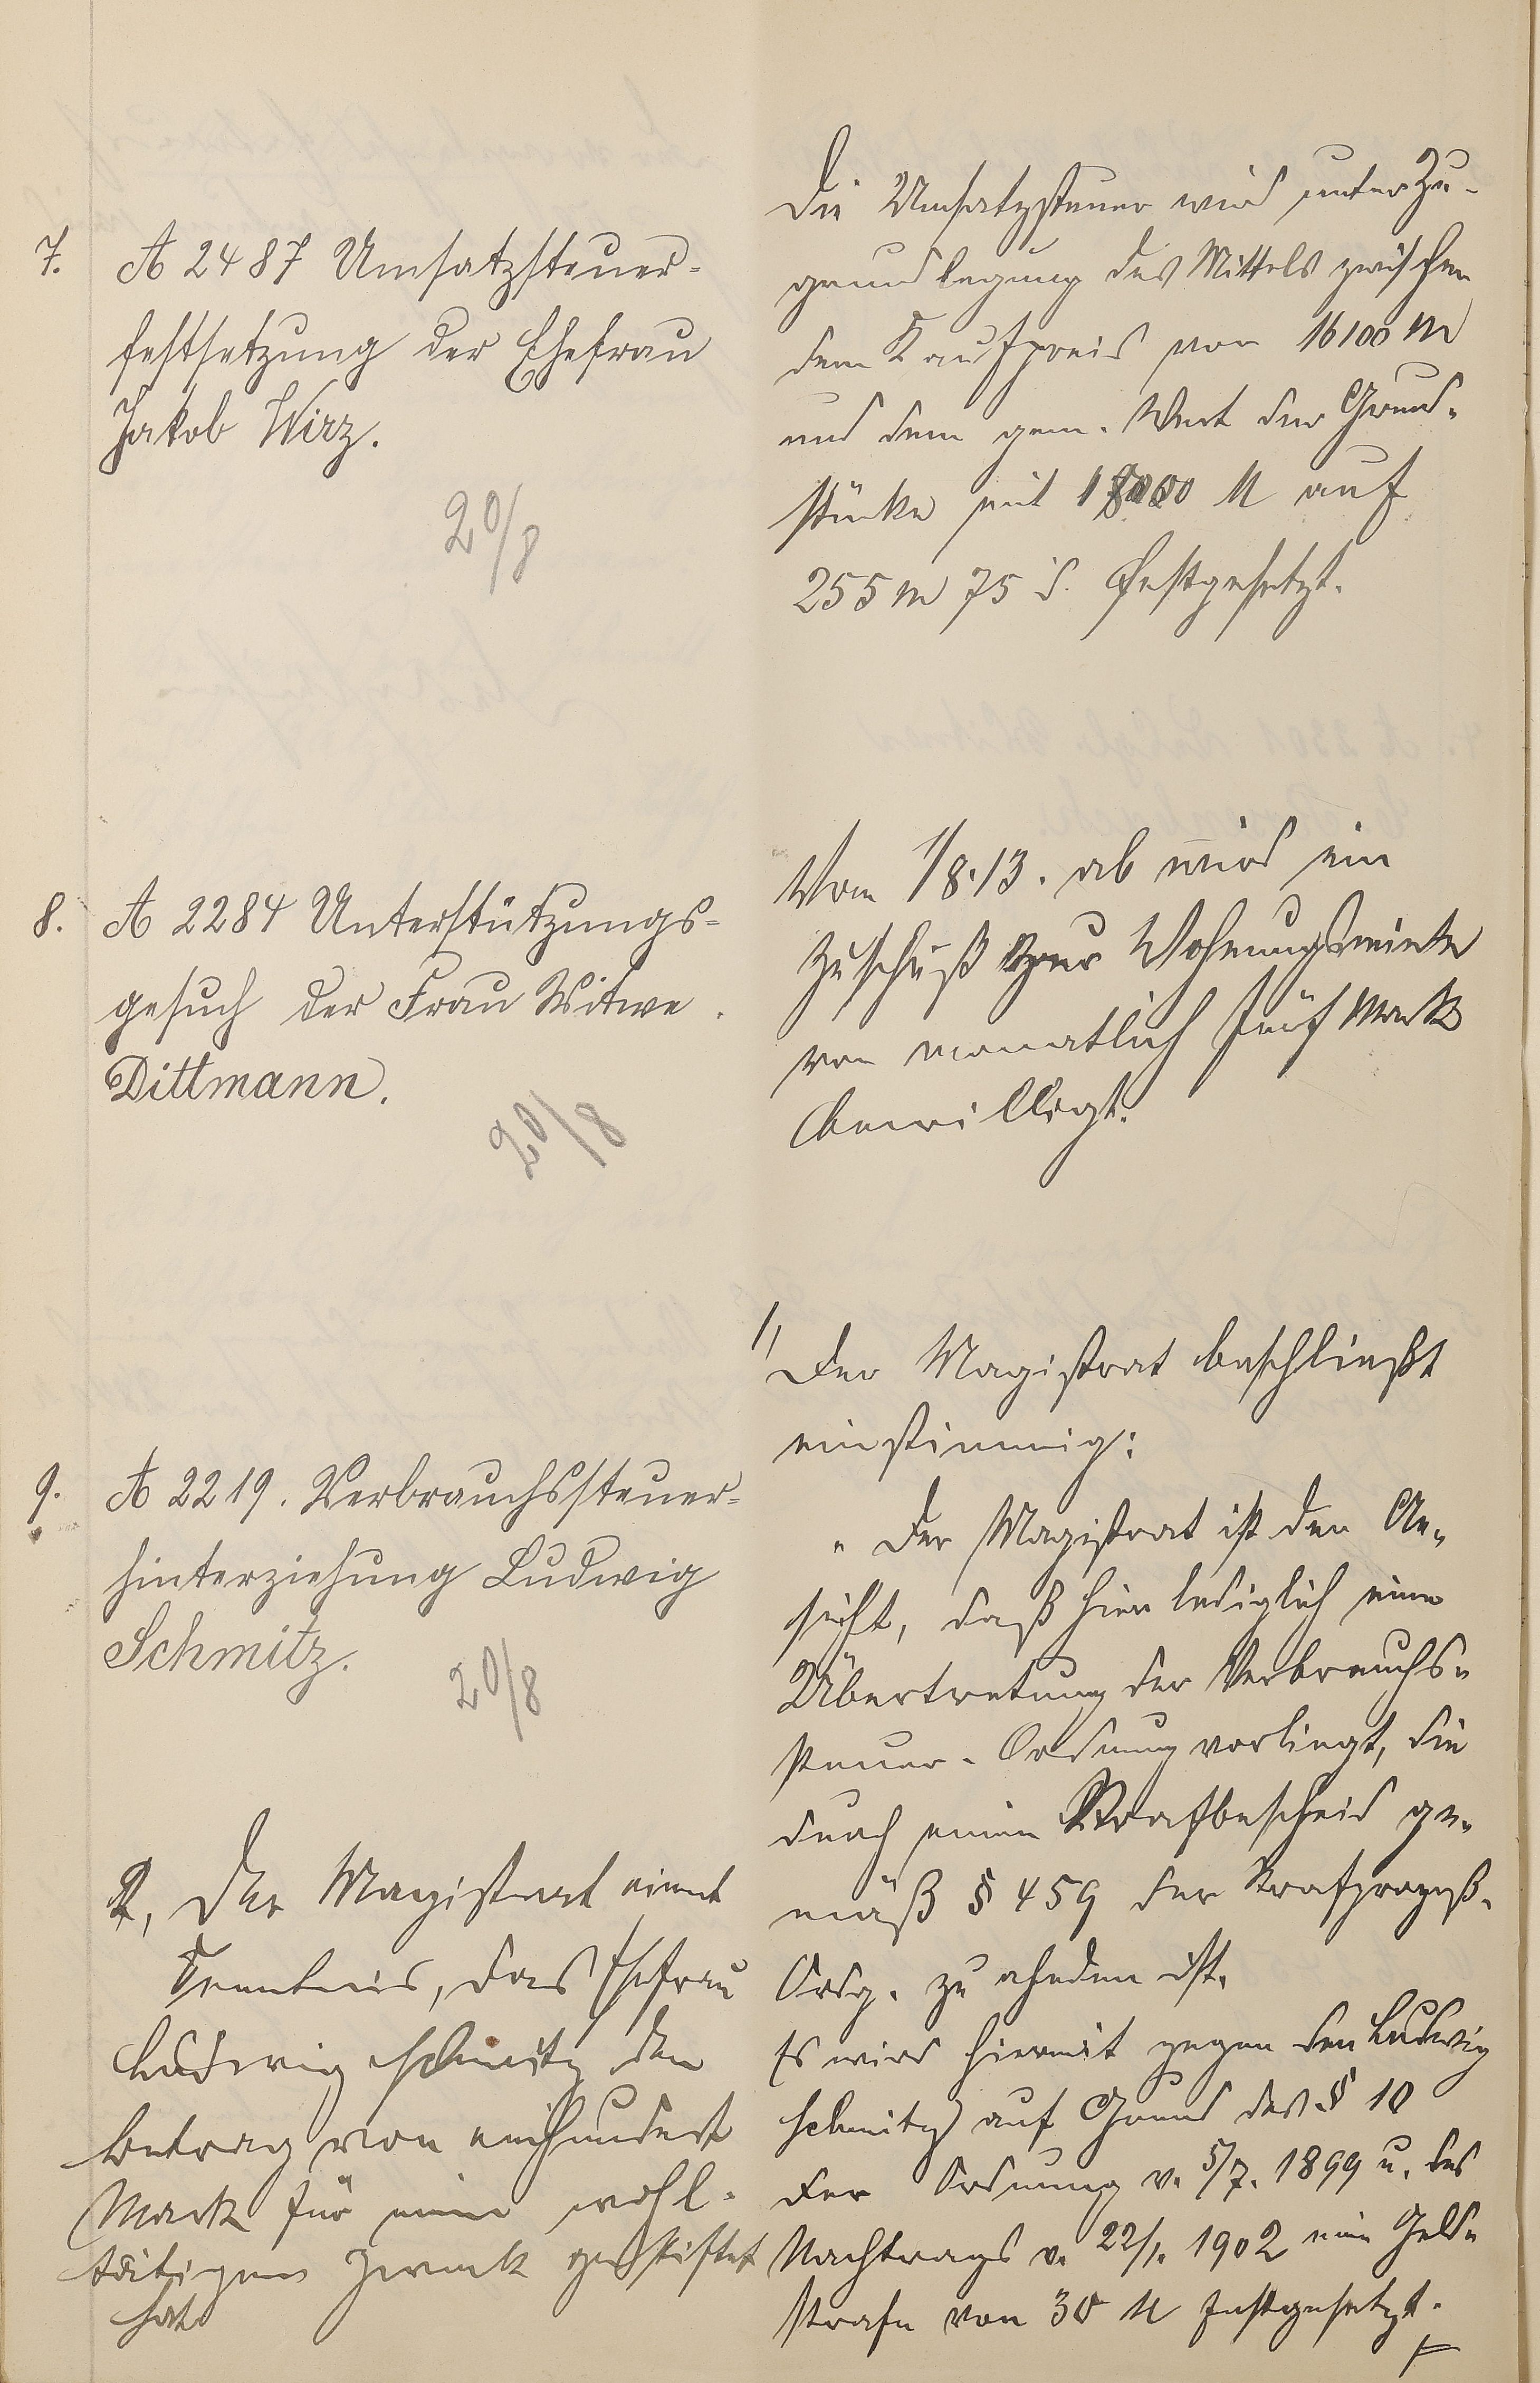 7. A 2487 Umsatzsteuer-
festsetzung der Ehefrau
Jakob Wirz.
20/8
Die Umsatzsteuer wird unter Zu-
grundlegung des Mittels zwischen
dem Kaufpreis von 16100 M
und dem gem. Wert der Grund-
stücke mit M auf
255 M 75 ₰. festgesetzt.
8. A 2284 Unterstützungs-
gesuch der Frau Witwe
Dittmann.
20/8
Vom 1/8.13. ab wird ein
Zuschuß zur Wohnungsmiete
von monatlich fünf Mark
bewilligt.
9. A 2219. Verbrauchssteuer-
hinterziehung Ludwig
Schmitz.
20/8
1, Der Magistrat beschließt
einstimmig:
"Der Magistrat ist der An-
sicht, daß hier lediglich eine
Übertretung der Verbrauchs-
steuer-Ordnung vorliegt, die
durch einen Strafbescheid ge-
mäß § 459 der Strafprozeß-
Ordg. zu ahnden ist.
Es wird hiermit gegen den Ludwig
Schmitz auf Grund des § 10
der Ordnung v. 5/7. 1899 u. des
Nachtrags v. 22/1. 1902 eine Geld-
strafe von 30 M festgesetzt.
2, Der Magistrat nimt
Kenntnis, das Ehefrau
Ludwig Schmitz den
Betrag von einhundert
Mark für einen wohl-
tätigen Zweck gestiftet
hat